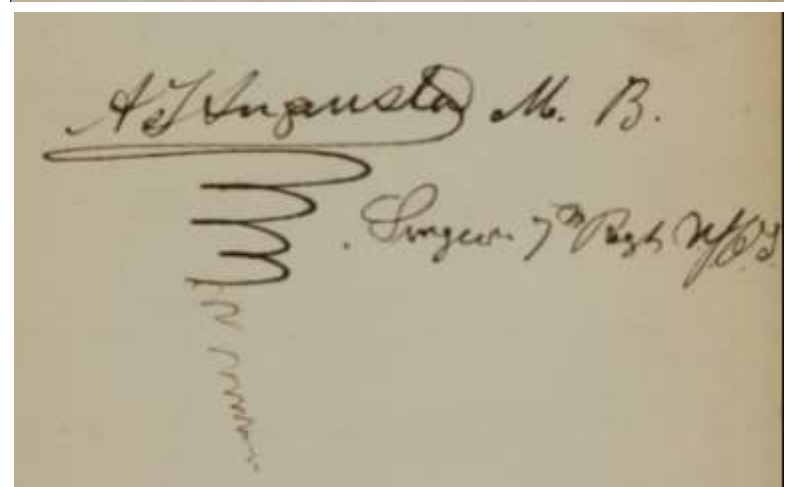 A T Augusta M. B.
Surgeon 7th Regt U.S.C.T